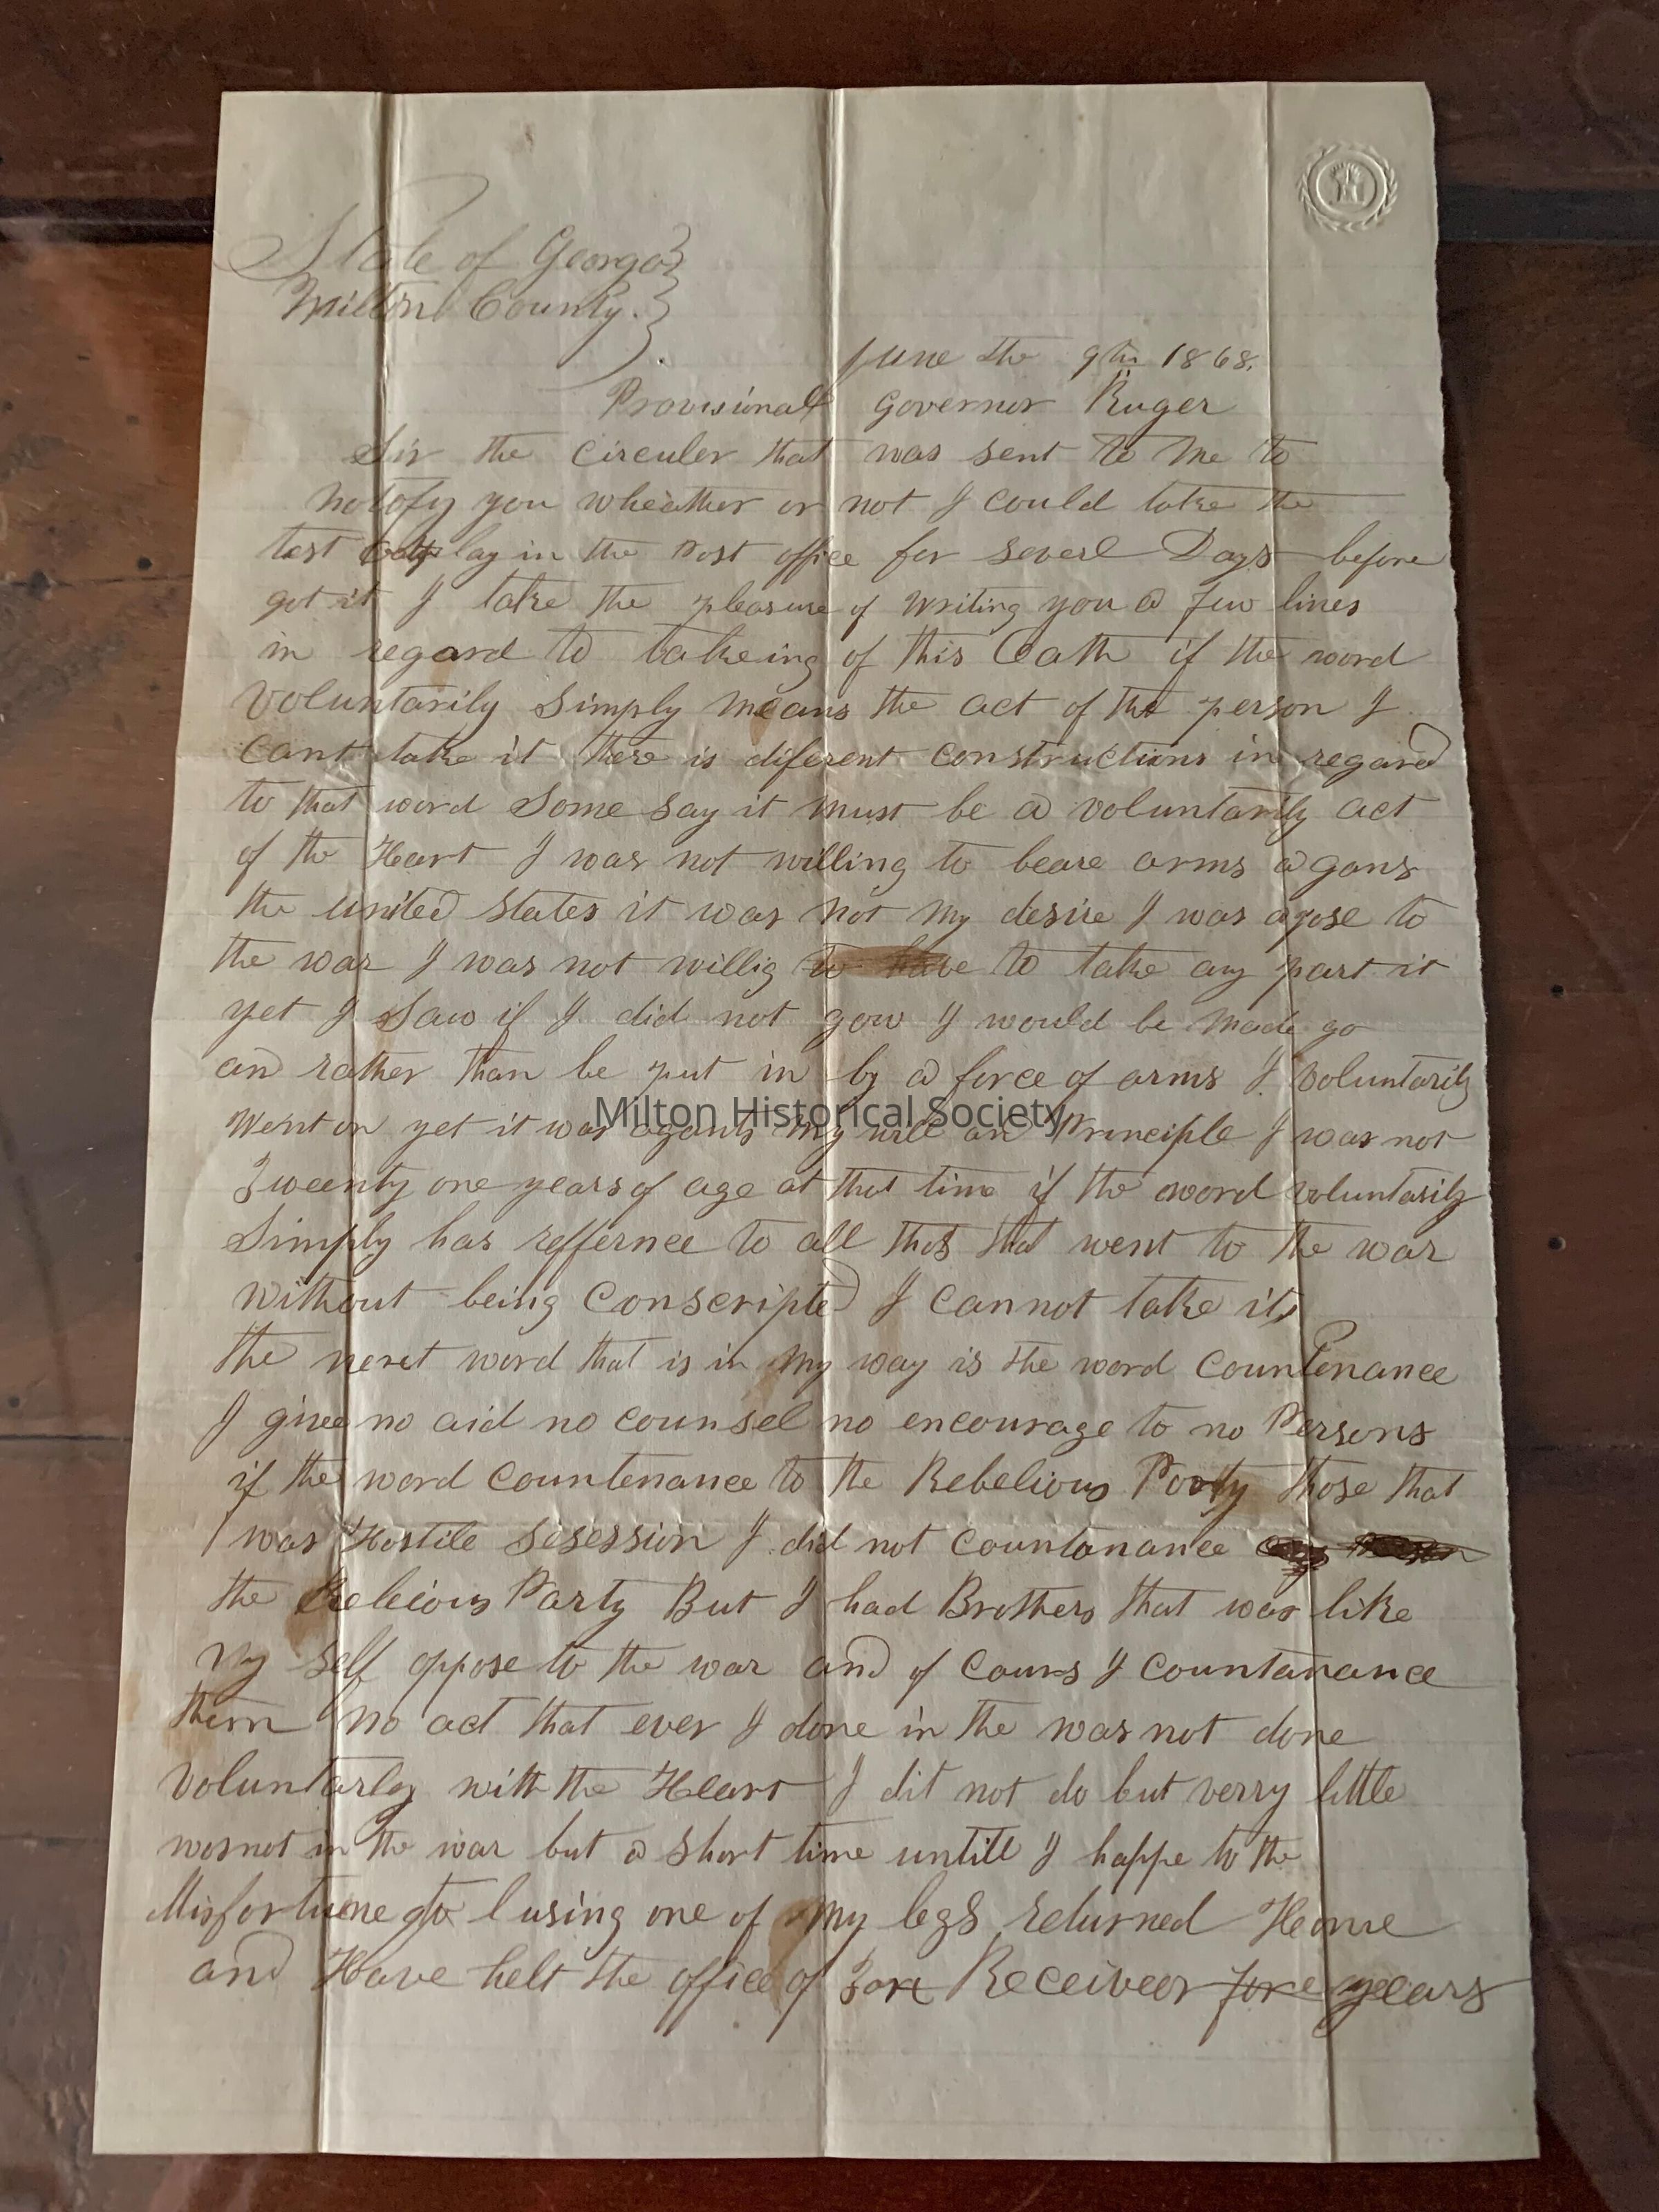 State of Georga
Milton County.
June the 9th 1868.
Provisional governor Ruger
Sir the circuler that was sent to me to
notofy you wheather or not I could take the
test lay in the Post office for severl Days before
got it I take the pleasure of writing you a few lines
in regard to takeing of this Oath if the word
voluntarily simply means the act of the person I
cant take it there is diferent constructions in regard
to that word Some say it must be a voluntarily act
of the Heart I was not willing to beare arms agans
the united states it was not my desire I was apose to
the war I was not willig to have to take any part it
yet I Saw if I did not gow I would be made go
and rather than be put in by a force of arms I voluntarily
went on yet it was agans my will and Principle I was not
Tweenty one years of age at that time if the word voluntarily
Simply has reffernce to all thos that went to the war
without being Conscripted I cannot take it
the next word that is in my way is the word Countenance
I give no aid no counsel no encourage to no Persons
if the word Countenance to the Rebelious Party those that
was Hostile sesession I did not Countanance
the Rebelious Party But I had Brothers that was like
my self oppose to the war and of Cours I Countanance
them no act that ever I done in the was not done
voluntarley with the Heart I dit not do but verry little
wosnot in the war but a short time untill I happe to the
Misfortune to lusing one of my legs returned Home
and Have helt the office of Tax Receiveer fore years
Milton Historical Society